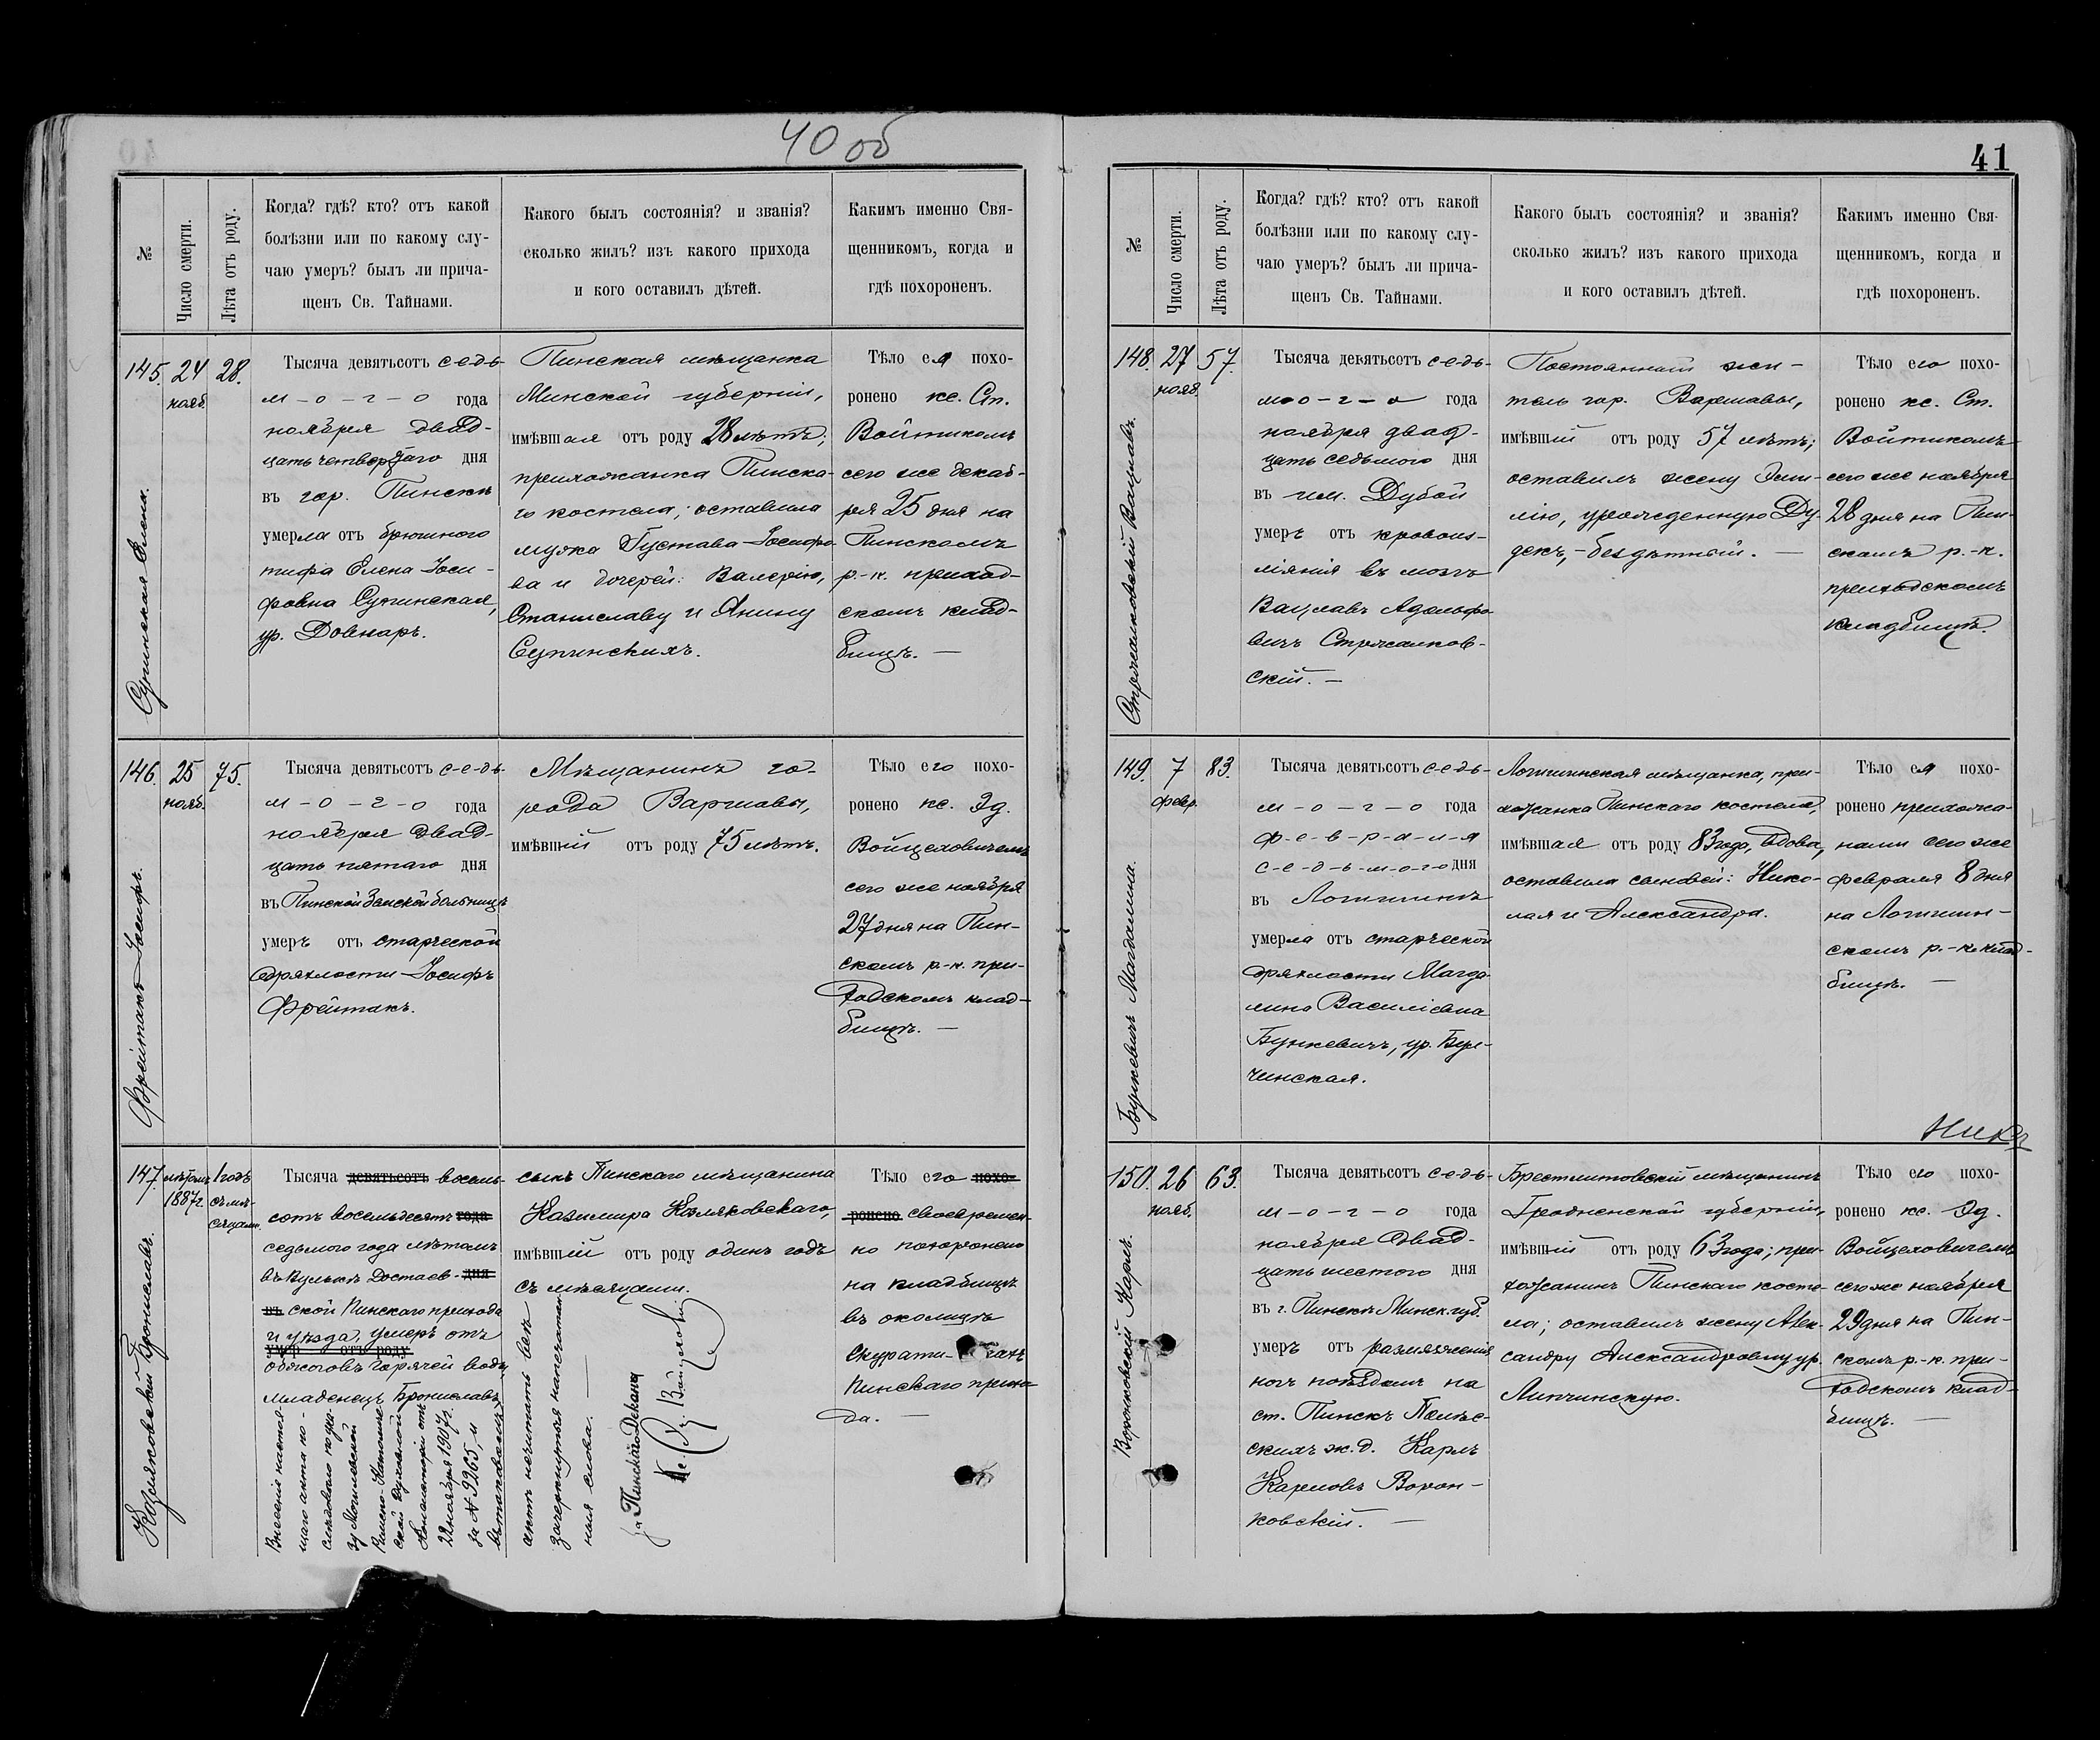 40 об
№
Число смерти.
Лѣта отъ роду.
Когда? гдѣ? кто? отъ какой
болѣзни или по какому слу-
чаю умеръ? былъ ли прича-
щенъ Св. Тайнами.
Какого былъ состоянія? и званія?
сколько жилъ? изъ какого прихода
и кого оставилъ дѣтей.
Какимъ именно Свя-
щенникомъ, когда и
гдѣ похороненъ.
145.
24
нояб.
28.
Супинская Елена.
Тысяча девятьсотъ седь-
м-о-г-о года
ноября двад-
цать четвертаго дня
въ гор. Пинскѣ
умерла отъ брюшного
тифа Елена Іоси-
фовна Супинская,
ур. Довнаръ.
Пинская мѣщанка
Минской губерніи,
имѣвшая отъ роду 28 лѣтъ;
прихожанка Пинска-
го костела; оставила
мужа Густава-Іосифо-
ва и дочерей: Валерію,
Станиславу и Янину
Супинскихъ.
Тѣло ея похо-
ронено кс. Ст.
Войтикомъ
сего же декаб-
ря 25 дня на
Пинскомъ
р.-к. приход-
скомъ клад-
бищѣ. —
146.
25
нояб.
75.
Фрейтакъ Іосифъ.
Тысяча девятьсотъ с-е-дь-
м-о-г-о года
ноября двад-
цать пятаго дня
въ Пинской Земской больницѣ
умеръ отъ старческой
дряхлости Іосифъ
Фрейтакъ.
Мѣщанинъ го-
рода Варшавы,
имѣвшій отъ роду 75 лѣтъ.
Тѣло его похо-
ронено кс. Эд.
Войцеховичемъ
сего же ноября
27 дня на Пин-
скомъ р-к. при-
ходскомъ клад-
бищѣ. —
147.
лѣтомъ
1887г.
1 годъ
съ мѣ-
сяцами.
Козляковскій Брониславъ.
Тысяча девятьсотъ восемь-
сотъ восемьдесятъ года
седьмого года лѣтомъ
въ Вулькѣ Достаев- дня
въ ской Пинскаго прихода
и уѣзда, умеръ отъ
умер отъ роду
обжоговъ горячей воды
младенецъ Брониславъ,
Внесеніе настоя-
щаго акта по-
слѣдовало по ука-
зу Могилевской
Римско-Католиче-
ской Духовной
Консисторіи отъ
22 ноября 1907 г.
за № 9265, и
сынъ Пинскаго мѣщанина
Казимира Козляковскаго,
имѣвшій отъ роду одинъ годъ
съ мѣсяцами.
актъ читать безъ
зачеркнутыя напечатан-
ныя слова. —
за Пинскаго Декана
Кс. Эд. Войцехович
Тѣло его похо-
ронено своевремен-
но похоронено
на кладбищѣ
въ околицѣ
Пинскаго прихо-
да. —
41
№
Число смерти.
Лѣта отъ роду.
Когда? гдѣ? кто? отъ какой
болѣзни или по какому слу-
чаю умеръ? былъ ли прича-
щенъ Св. Тайнами.
Какого былъ состоянія? и званія?
сколько жилъ? изъ какого прихода
и кого оставилъ дѣтей.
Какимъ именно Свя-
щенникомъ, когда и
гдѣ похороненъ.
148.
27
нояб.
57.
Стржалковскій Вацлавъ.
Тысяча девятьсотъ с-едь-
м-о-г-о года
ноября двад-
цать седьмого дня
въ им. Дубой
умеръ отъ кровоиз-
ліянія въ мозгъ
Вацлавъ Адольфо-
вичъ Стржалков-
скій. —
Постоянный жи-
тель гор. Варшавы,
имѣвшій отъ роду 57 лѣтъ;
оставилъ жену Эми-
лію, урожденную Ду-
декъ, - бездѣтный. —
Тѣло его похо-
ронено кс. Ст.
Войтикомъ
сего же ноября
28 дня на Пин-
скомъ р.-к.
приходскомъ
кладбищѣ.
149.
7
февр.
83.
Бункевичъ Магдалина.
Тысяча девятьсотъ с-е-дь-
м-о-г-о года
ф-е-в-р-а-л-я
с-е-д-ь-м-о-г-о дня
въ Логишинѣ
умерла отъ старческой
дряхлости Магда-
лина Василіевна
Бункевичъ, ур. Буе-
чинская.
Логишинская мѣщанка, при-
хожанка Пинскаго костела,
имѣвшая отъ роду 83 года, вдова,
оставила сыновей: Нико-
лая и Александра.
Тѣло ея похо-
ронено прихожа-
нами сего же
февраля 8 дня
на Логишин-
скомъ р.-к. клад-
бищѣ. —
150.
26
нояб.
63.
Воронковскій Карлъ.
Тысяча девятьсотъ с-едь-
м-о-г-о года
ноября двад-
цать шестого дня
въ г. Пинскѣ Минск. губ.
умеръ отъ размягченія
ногъ поѣздомъ на
ст. Пинскъ Полѣс-
скихъ ж.д. Карлъ
Карловъ Ворон-
ковскій. —
Брестлитовскій мѣщанинъ
Гродненской губерніи,
имѣвшій отъ роду 63 года; при-
хожанинъ Пинскаго косте-
ла; оставилъ жену Алек-
сандру Александровну ур.
Липчинскую.
Тѣло его похо-
ронено кс. Эд.
Войцеховичемъ
сего же ноября
29 дня на Пин-
скомъ р.-к. при-
ходскомъ клад-
бищѣ. —